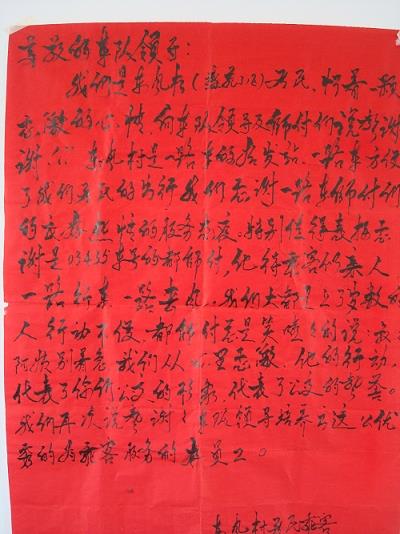 尊敬的车队领导：
我们是东风村（ 小区）居民，怀着一颗
感激的心情，向车队领导及师付们说声谢
谢！东风村是一路车的始发站，一路车方便
了我们居民的出行我们感谢一路车师付们
的文明热情的服务态度。特别值得表扬感
谢是03435车号的郝师付，他待乘客似亲人
一路行车一路春风，我们大都是上了岁数的
人行动不便，郝师付总是笑嘻嘻的说：
阿姨别着急我们从心里感激，他的行动，
代表了你们公司的形象，代表了公交的
我们再次说声谢谢车队领导培养出这么优
秀的为乘客服务的员工。
东风村居民乘客